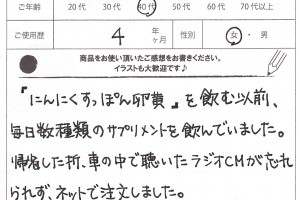 ご年齢 20代 30代 40代 50代 60代 70代以上
ご使用歴 4年 ヶ月 性別 女・男
商品をお使い頂いたご感想をお書きください。
イラストも大歓迎です♪
『にんにくすっぽん卵黄』を飲む以前、
毎日数種類のサプリメントを飲んでいました。
帰省した折、車の中で聴いたラジオCMが忘れ
られず、ネットで注文しました。